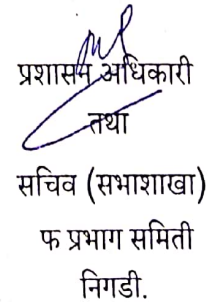 प्रशासन अधिकारी
तथा
सचिव (सभाशाखा)
फ प्रभाग समिती
निगडी.